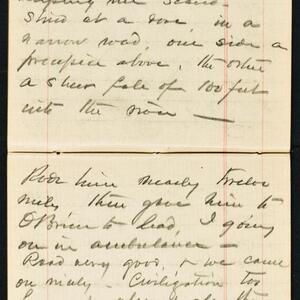 Shied at a dove, in a
narrow road, one side a
precipice above, the other
a sheer fall of 100 feet
into the river —
Rode him nearly twelve
miles then gave him to
O'Brien to lead, I going
on in ambulance —
Road very good, & we came
on nicely. Civilization too